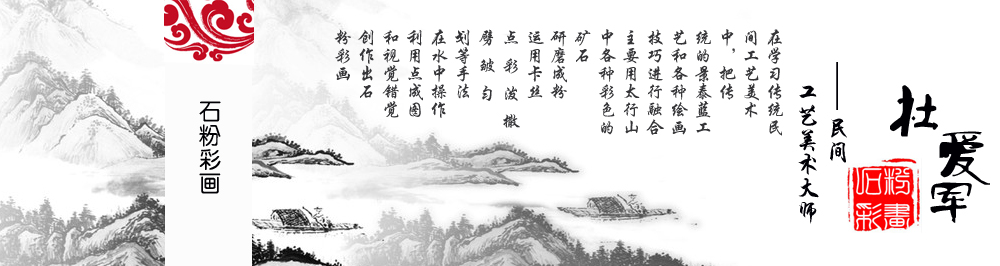 杜爱军
石彩
粉畫
——民间
工艺美术大师
在学习传统民
间工艺美术
中，把传
统的景泰蓝工
艺和各种绘画
技巧进行融合
主要用太行山
中各种彩色的
矿石
研磨成粉
运用卡丝
点彩泼撒
劈皴匀
划等手法
在水中操作
利用点成图
和视觉错觉
创作出石
粉彩画
石粉彩画